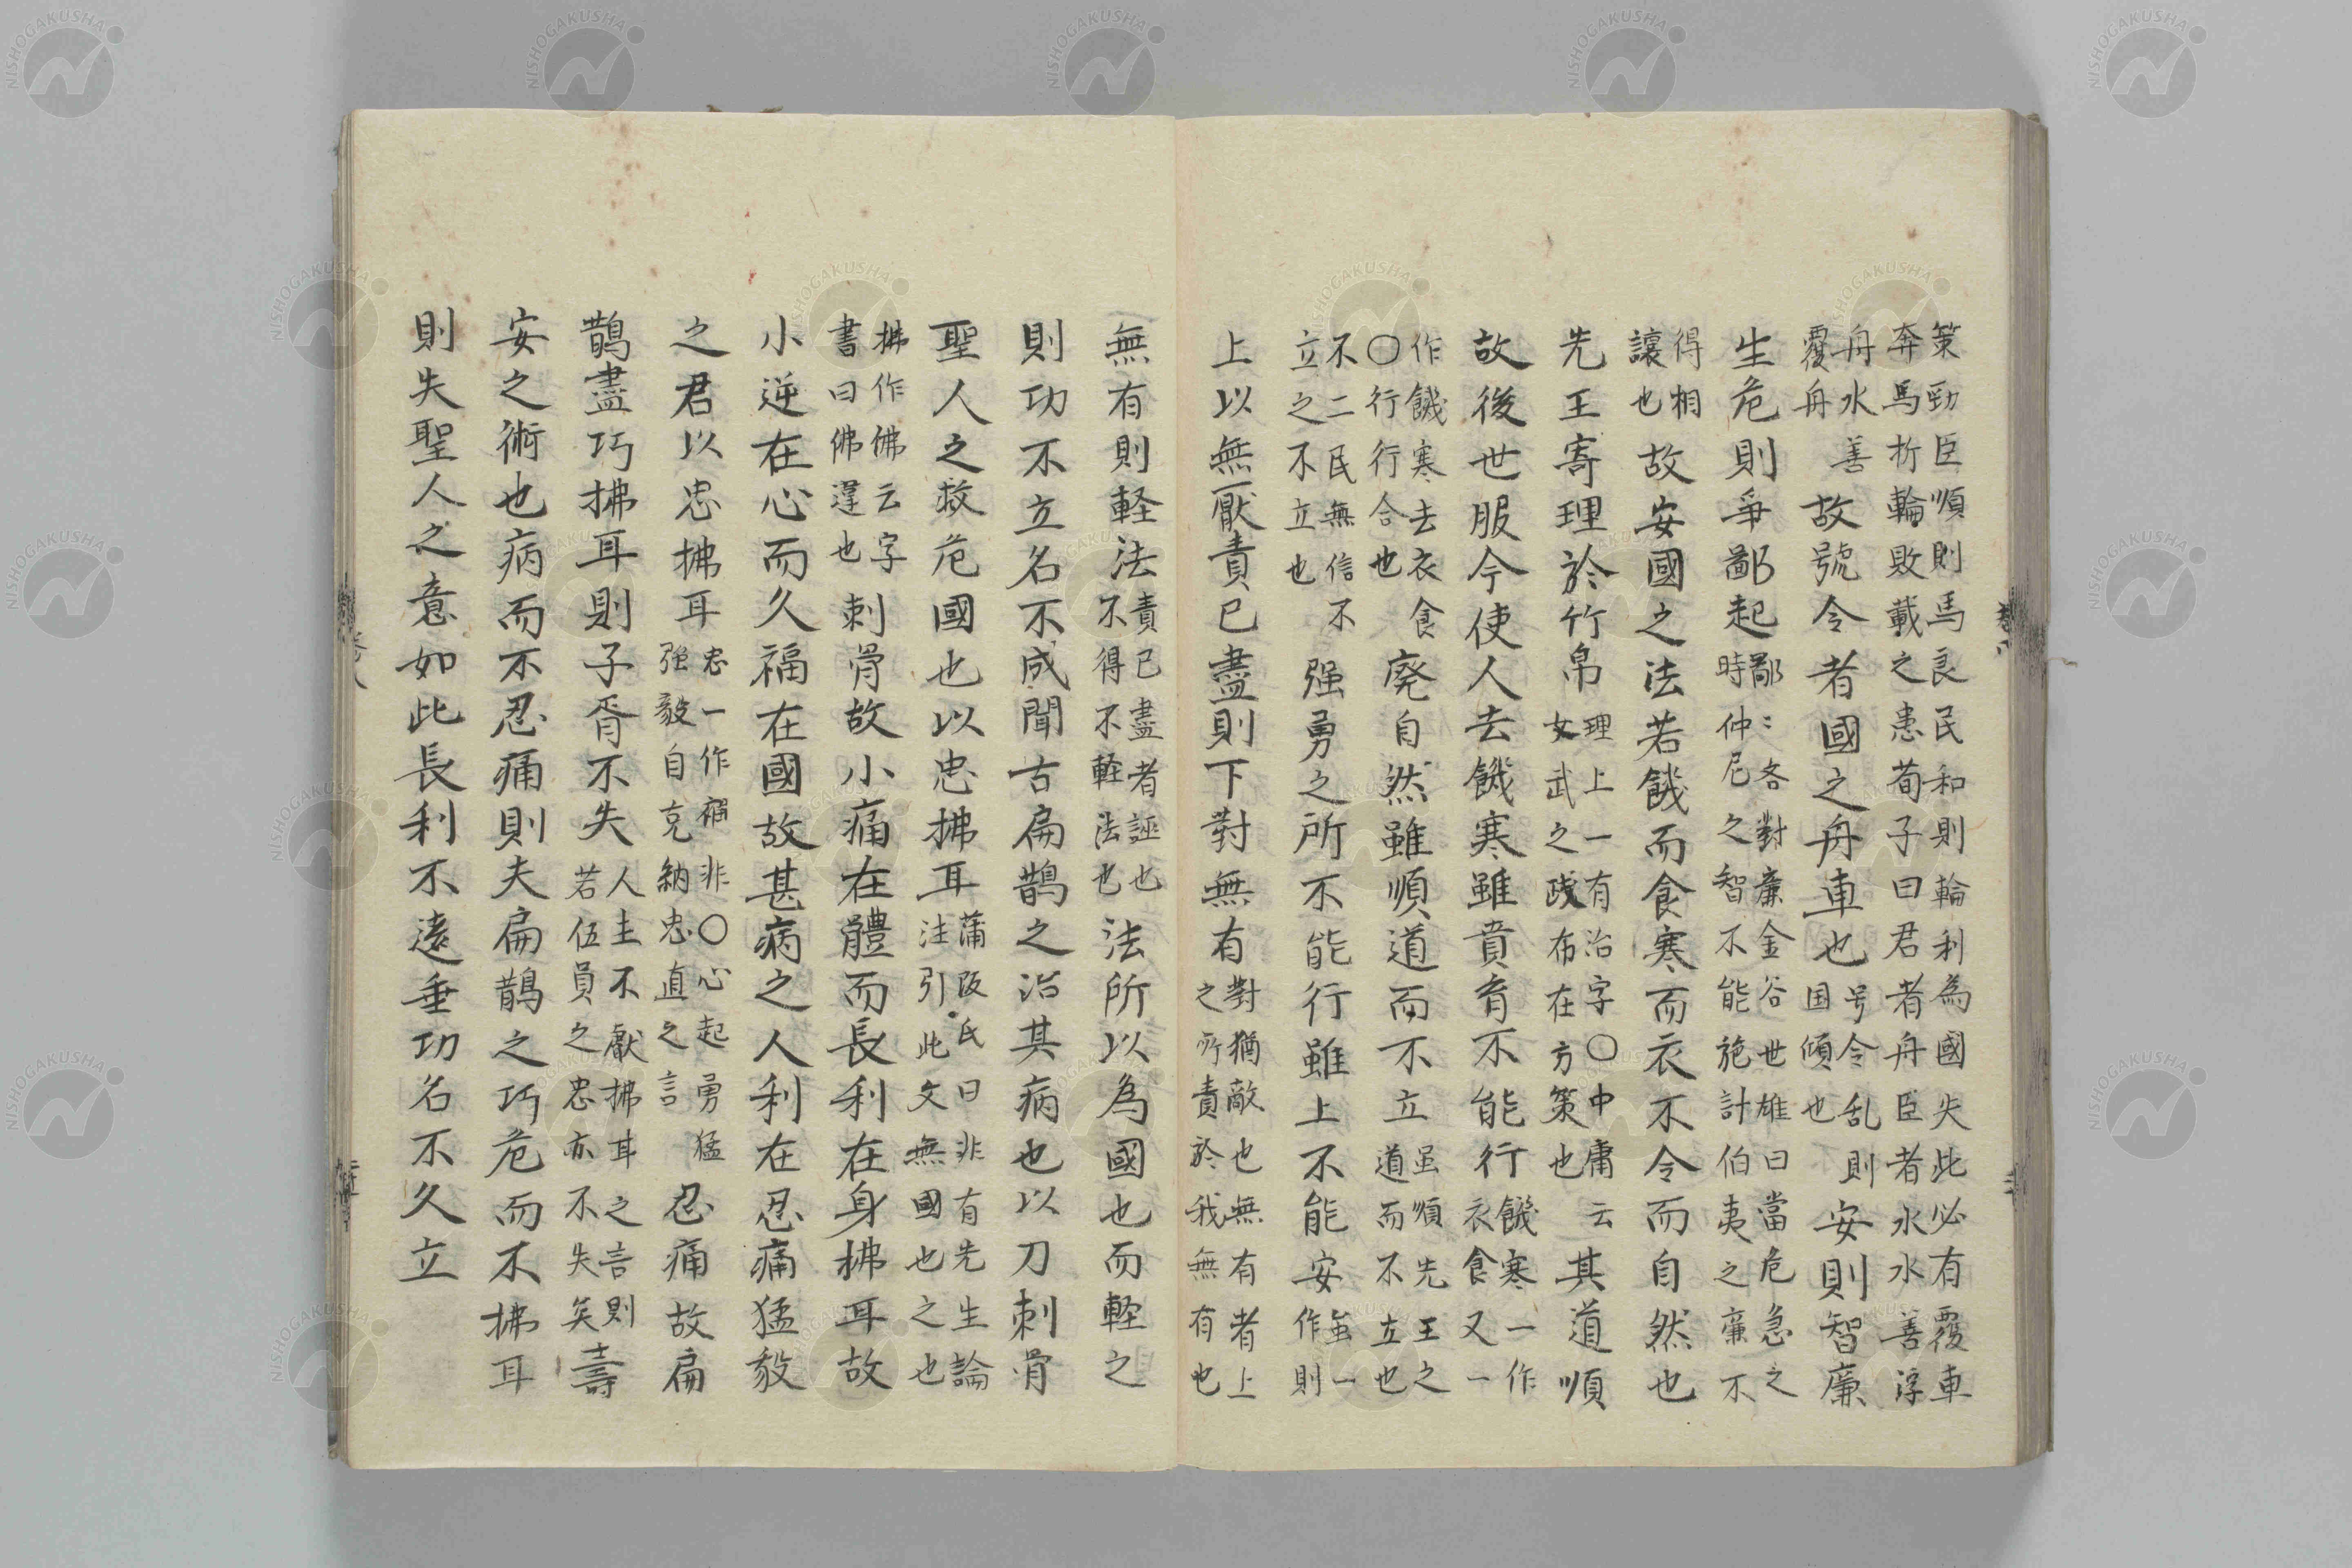 策勁臣順則馬良民和則輪利為國失此必有覆車
奔馬折輪敗載之患荀子曰君者舟臣者水水善浮
舟水善
覆舟
故號令者國之舟車也
号令乱則
国傾也
安則智廉
生危則爭鄙起
鄙〻各對廉金谷世雄曰當危急之
時仲尼之智不能施計伯夷之廉不
得相
讓也
故安國之法若饑而食寒而衣不令而自然也
先王寄理於竹帛
理上一有治字〇中庸云
文武之政布在方策也
其道順
故後世服今使人去饑寒雖賁育不能行
饑寒一作
衣食又一
作饑寒去衣食
〇行行合也
廃自然雖順道而不立
虽順先王之
道而不立也
不二民無信不
立之不立也
强勇之所不能行雖上不能安
虽一
作則
上以無厭責已盡則下對無有
對猶敵也無有者上
之所責於我無有也
無有則軽法
責已盡者誣也
不得不軽法也
法所以為國也而軽之
則功不立名不成聞古扁鵲之治其病也以刀刺骨
聖人之救危國也以忠拂耳
蒲阪氏曰非有先生論
注引此文無國也之也
拂作佛云字
書曰佛違也
刺骨故小痛在體而長利在身拂耳故
小逆在心而久福在國故甚病之人利在忍痛猛毅
之君以忠拂耳
忠一作福非〇心起勇猛
强毅自克納忠直之言
忍痛故扁
鵲盡巧拂耳則子胥不失
人主不厭拂耳之言則
若伍員之忠亦不失矣
壽
安之術也病而不忍痛則夫扁鵲之巧危而不拂耳
則失聖人之意如此長利不遠垂功名不久立